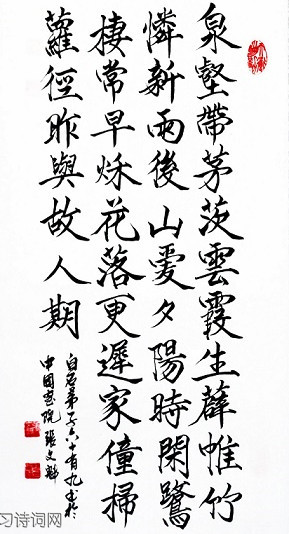 泉壑帶茅茨雲霞生薜帷竹
憐新雨後山愛夕陽時閑鷺
棲常早秌花落更遲家僮掃
蘿徑昨與故人期
白石弟子六 書於
中國畫院 張文
习诗词网